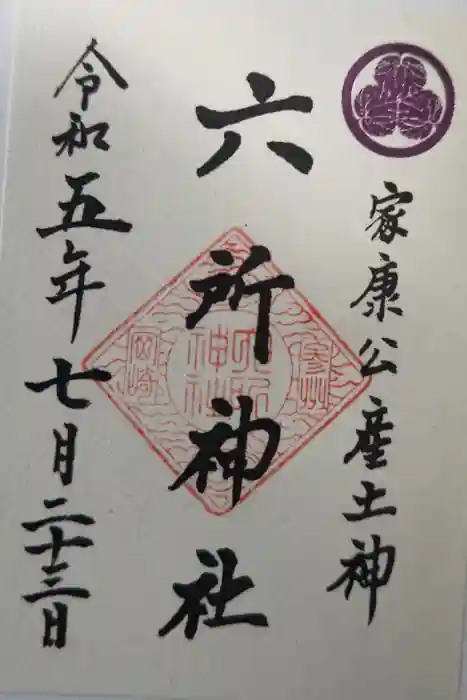 家康公産土神
六所神社
参州
六所神社
岡崎
令和五年七月二十三日